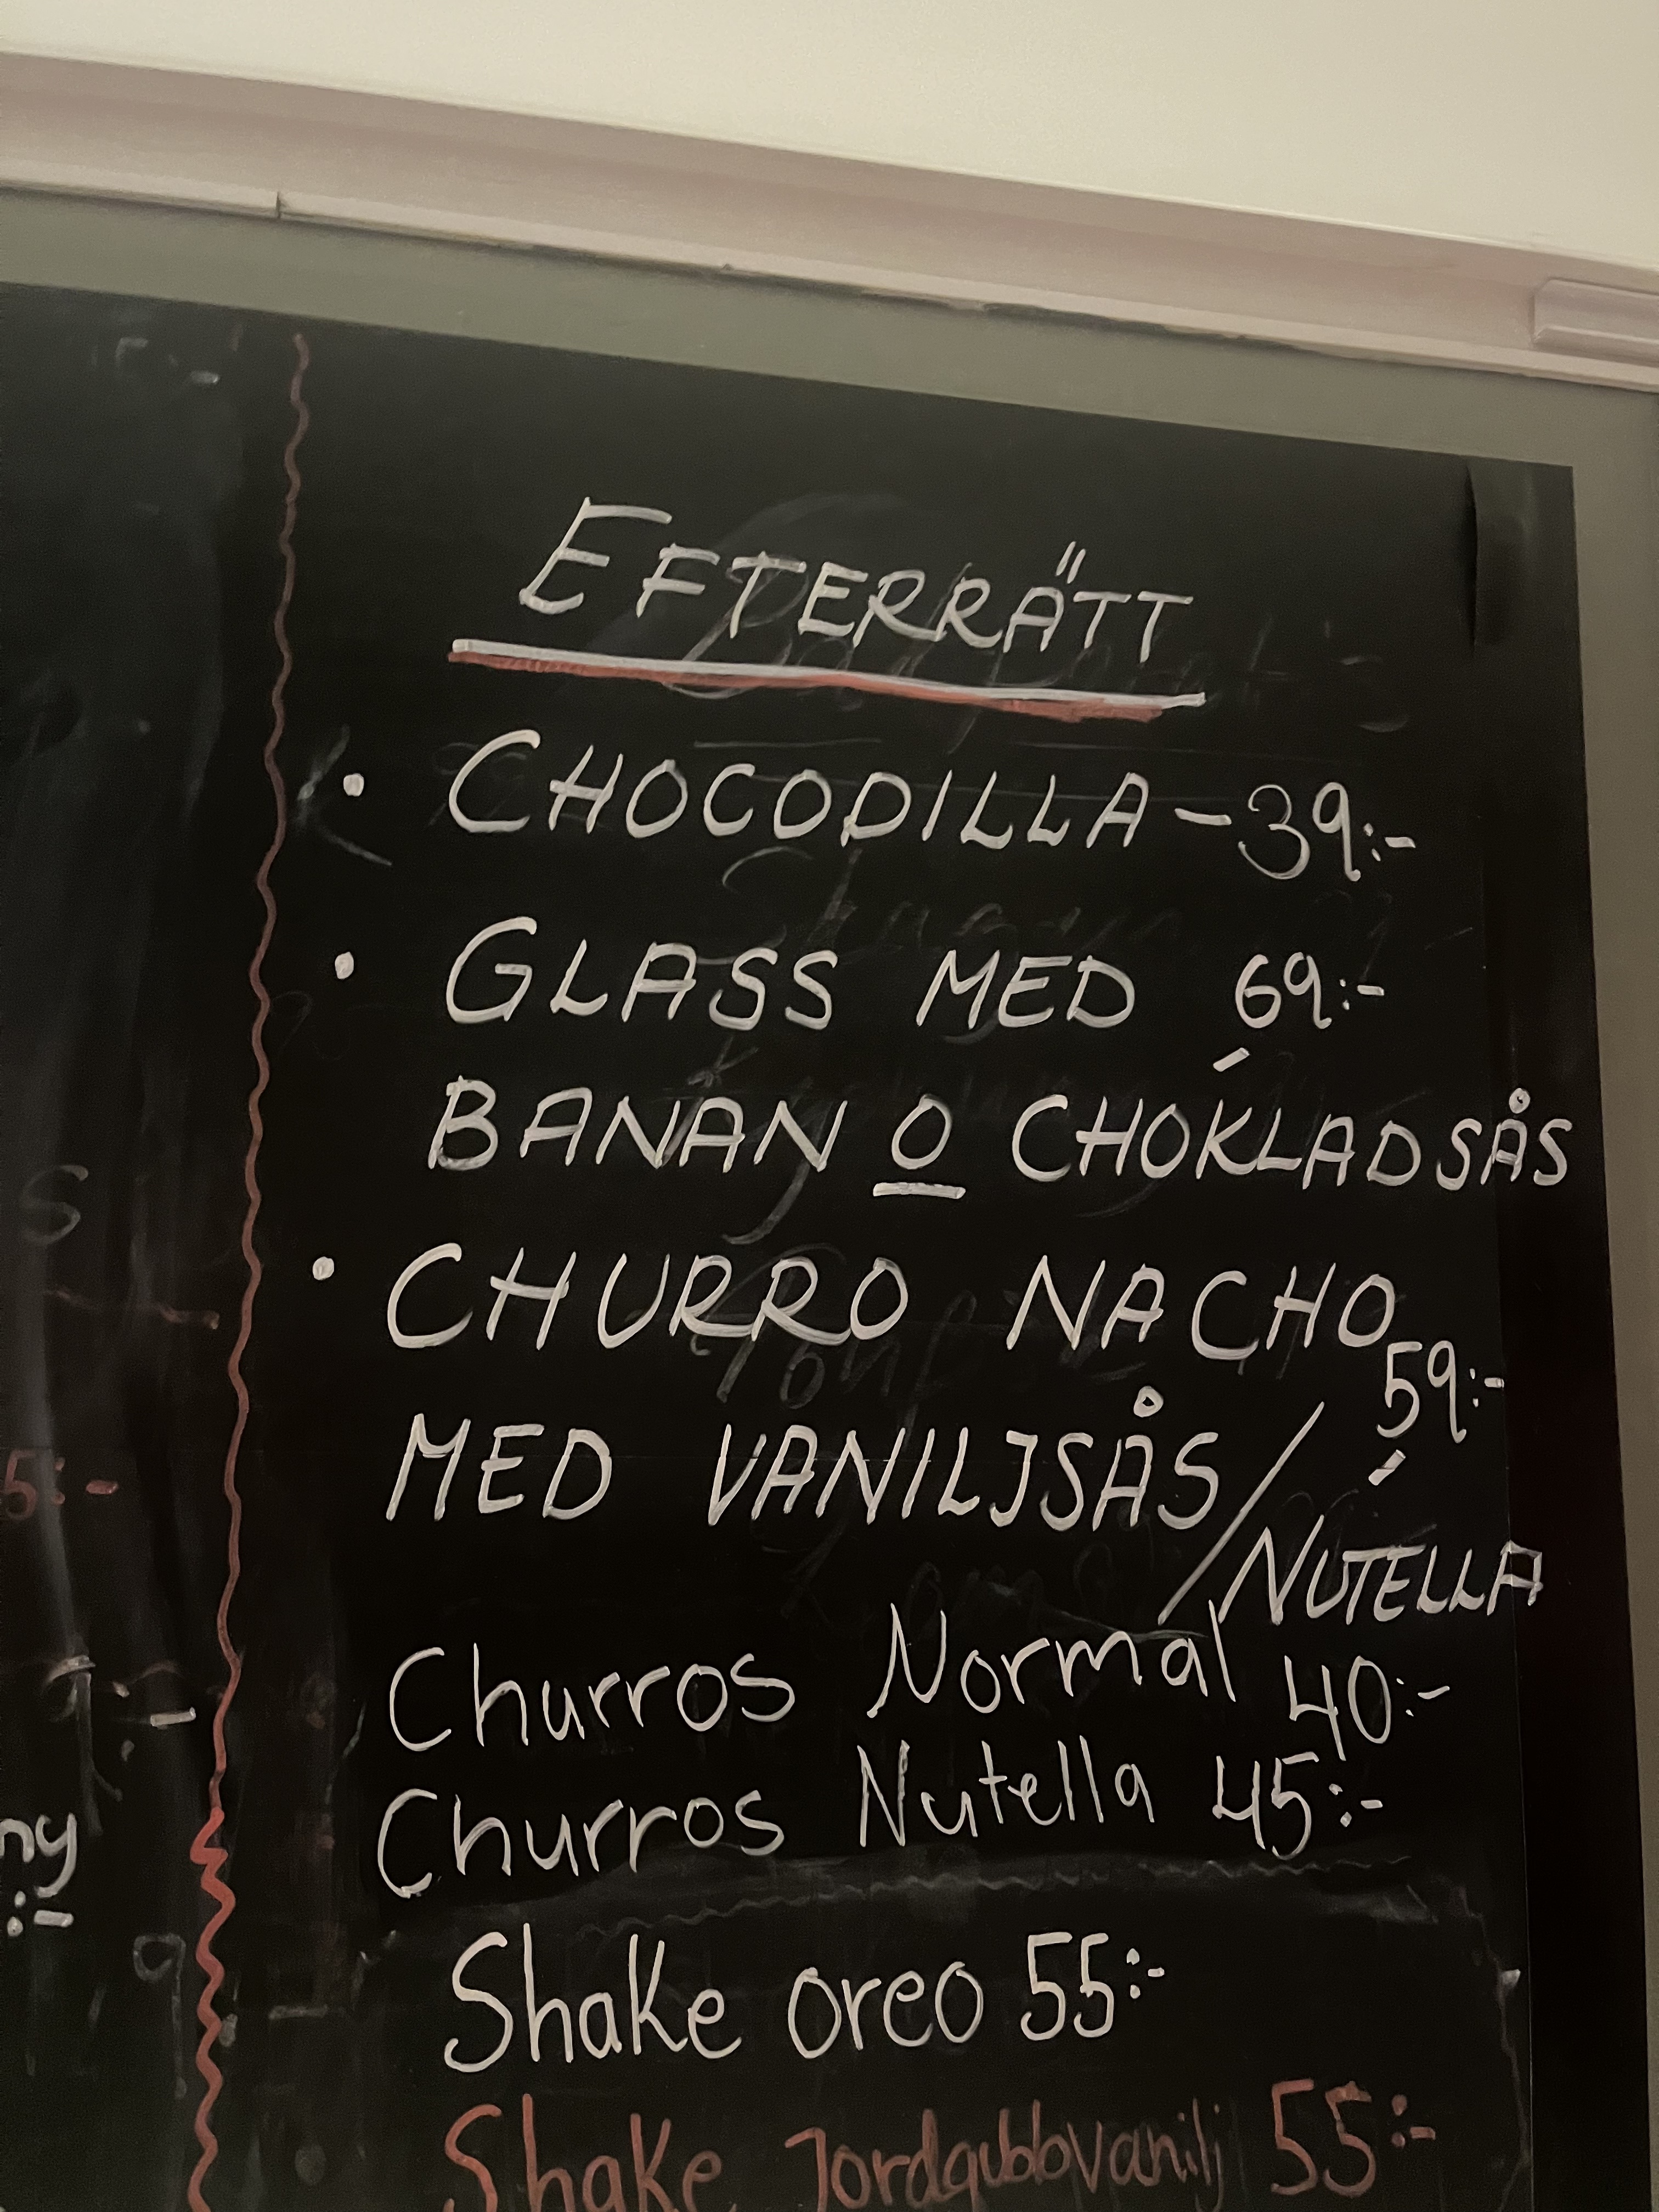 EFTERRÄTT
• CHOCODILLA – 39:-
• GLASS MED 69:-
BANAN O CHOKLADSÅS
• CHURRO NACHO
59:-
MED VANILJSÅS /
NUTELLA
Churros Normal 40:-
Churros Nutella 45:-
Shake oreo 55:-
Shake Jordgubbvanilj 55:-
S
5:-
ny
:-